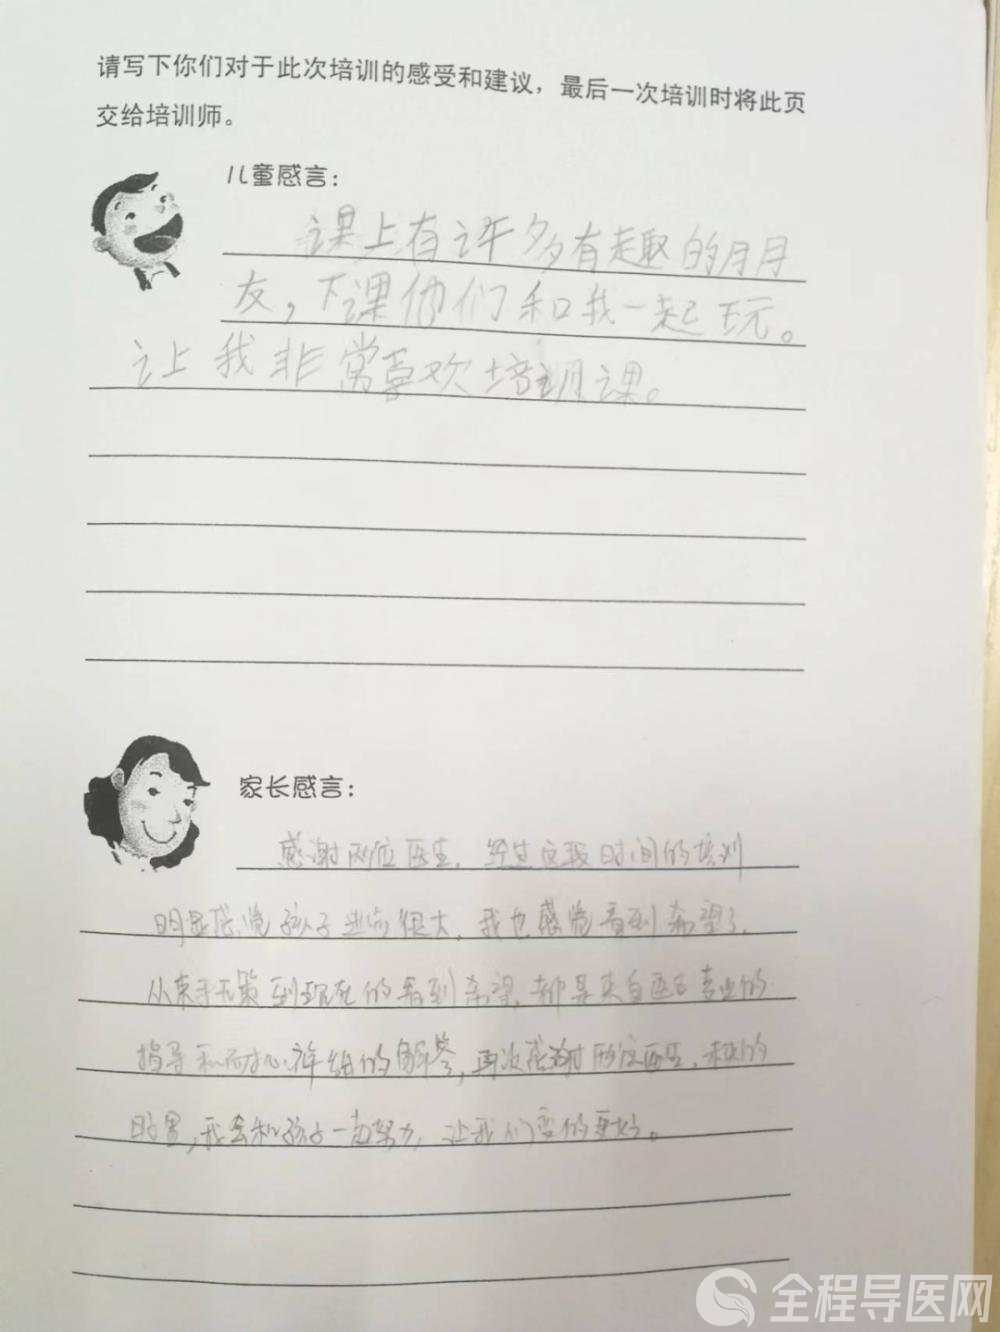 请写下你们对于此次培训的感受和建议，最后一次培训时将此页
交给培训师。
儿童感言：
课上有许多有趣的月月
友，下课他们和我一起玩。
让我非常喜欢培班课。
家长感言：
感谢两位医生，经过这段时间的培训
明显感觉孩子进步很大，我也感觉看到希望了，
从束手无策到现在的看到希望，都是来自医生专业的
指导和耐心详细的解答，再次感谢两位医生，未来的
时日，我会和孩子一起努力，让我们变的更好。
全程导医网